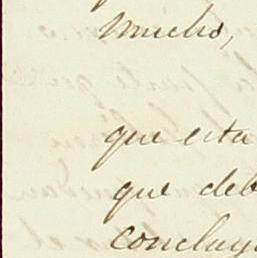 mucho,
que esta
que deb
concluy